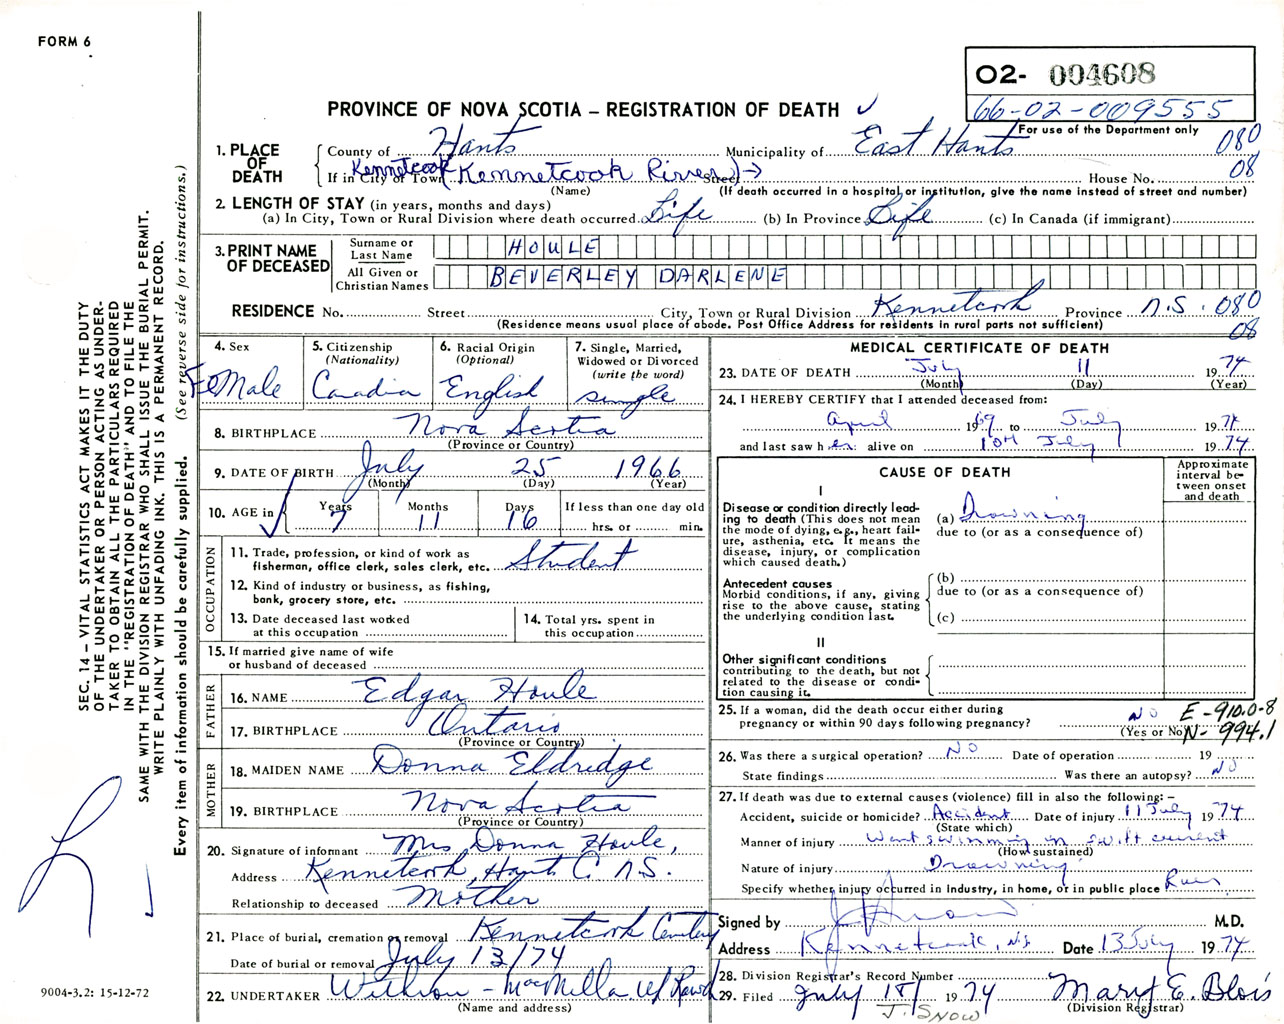 FORM 6
O2- 004608
66-02-009555
For use of the Department only
PROVINCE OF NOVA SCOTIA – REGISTRATION OF DEATH
1. PLACE OF DEATH
County of Hants Municipality of East Hants 080
If in City or Town Kennetcook (Kennetcook River) → Street House No. 08
(Name) (If death occurred in a hospital or institution, give the name instead of street and number)
2. LENGTH OF STAY (in years, months and days)
(a) In City, Town or Rural Division where death occurred Life (b) In Province Life (c) In Canada (if immigrant)
3. PRINT NAME OF DECEASED
Surname or Last Name HOULE
All Given or Christian Names BEVERLEY DARLENE
RESIDENCE No. Street City, Town or Rural Division Kennetcook Province N.S. 080
(Residence means usual place of abode. Post Office Address for residents in rural parts not sufficient) 08
4. Sex Female
5. Citizenship (Nationality) Canadia
6. Racial Origin (Optional) English
7. Single, Married, Widowed or Divorced (write the word) single
8. BIRTHPLACE Nova Scotia
(Province or Country)
9. DATE OF BIRTH July 25 1966
(Month) (Day) (Year)
10. AGE in Years 7 Months 11 Days 16 If less than one day old hrs. or min.
OCCUPATION
11. Trade, profession, or kind of work as fisherman, office clerk, sales clerk, etc. Student
12. Kind of industry or business, as fishing, bank, grocery store, etc.
13. Date deceased last worked at this occupation
14. Total yrs. spent in this occupation
15. If married give name of wife or husband of deceased
FATHER
16. NAME Edgar Houle
17. BIRTHPLACE Ontario
(Province or Country)
MOTHER
18. MAIDEN NAME Donna Eldridge
19. BIRTHPLACE Nova Scotia
(Province or Country)
20. Signature of informant Mrs Donna Houle,
Address Kennetcook, Hants C. N.S.
Relationship to deceased Mother
21. Place of burial, cremation or removal Kennetcook Cemetery
Date of burial or removal July 13/74
22. UNDERTAKER
(Name and address)
MEDICAL CERTIFICATE OF DEATH
23. DATE OF DEATH July 11 1974
(Month) (Day) (Year)
24. I HEREBY CERTIFY that I attended deceased from:
April 1969 to July 1974
and last saw her alive on 10th July 1974
CAUSE OF DEATH
Approximate interval between onset and death
I
Disease or condition directly leading to death (This does not mean the mode of dying, e.g., heart failure, asthenia, etc. It means the disease, injury, or complication which caused death.)
(a) Drowning
due to (or as a consequence of)
Antecedent causes
Morbid conditions, if any, giving rise to the above cause, stating the underlying condition last.
(b)
due to (or as a consequence of)
(c)
II
Other significant conditions contributing to the death, but not related to the disease or condition causing it.
25. If a woman, did the death occur either during pregnancy or within 90 days following pregnancy? NO
(Yes or No)
E-910.0-8
N-994.1
26. Was there a surgical operation? NO Date of operation 19
State findings Was there an autopsy? NO
27. If death was due to external causes (violence) fill in also the following: –
Accident, suicide or homicide? Accident Date of injury 11 July 1974
(State which)
Manner of injury Went swimming in swift current
(How sustained)
Nature of injury Drowning
Specify whether injury occurred in Industry, in home, or in public place River
Signed by M.D.
Address Kennetcook, NS Date 13 July 1974
28. Division Registrar's Record Number
29. Filed July 15/ 1974 Mary E. Blois
(Division Registrar)
J. SNOW
SEC. 14 – VITAL STATISTICS ACT MAKES IT THE DUTY
OF THE UNDERTAKER OR PERSON ACTING AS UNDER-
TAKER TO OBTAIN ALL THE PARTICULARS REQUIRED
IN THE "REGISTRATION OF DEATH" AND TO FILE THE
SAME WITH THE DIVISION REGISTRAR WHO SHALL ISSUE THE BURIAL PERMIT.
WRITE PLAINLY WITH UNFADING INK. THIS IS A PERMANENT RECORD.
Every item of information should be carefully supplied. (See reverse side for instructions.)
9004-3.2: 15-12-72